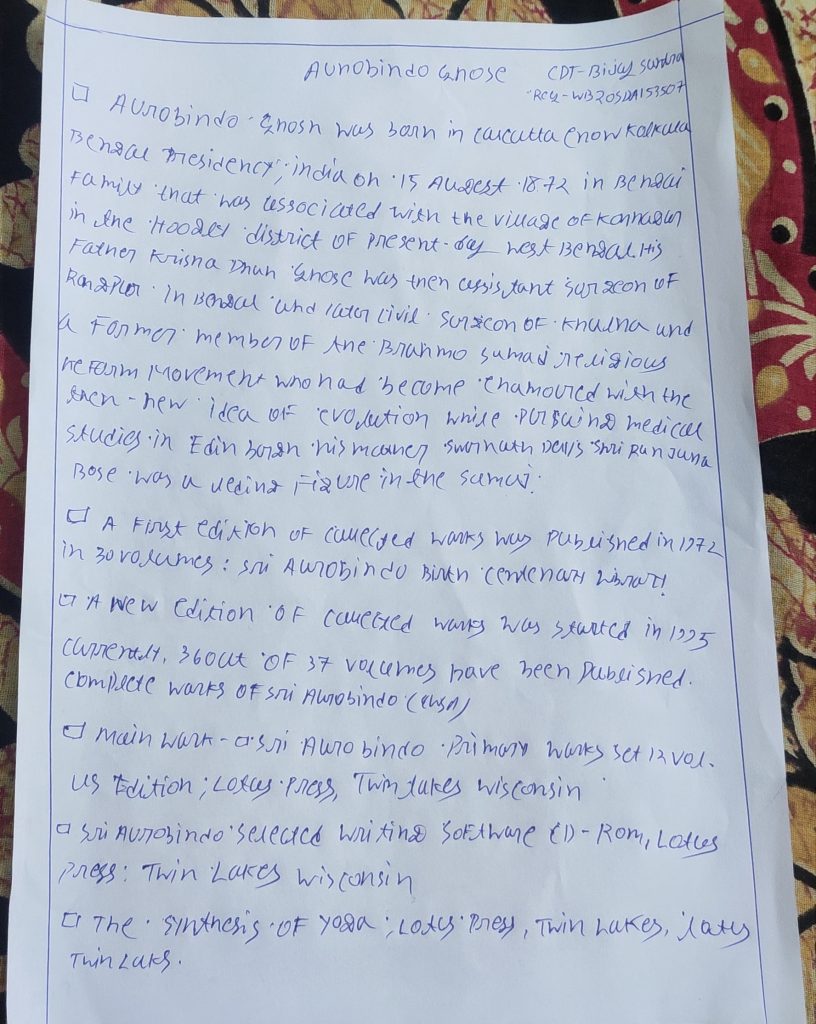 Aurobindo Ghose CDT-Bijoy Sardra
Reg-WB20SDA153507
Aurobindo Ghosh was born in Calcutta (now Kolkata
Bengal Presidency, india on 15 Augest 1872 in Bengali
Family that was associated with the village of Konnagar
in the Hoogly district of Present-day West Bengal. His
Father Krisna Dhun Ghose was then assistant Surgeon of
Rangpur in Bengal and later civil Surgeon of Khulna and
a Former member of the Brahmo Samaj religious
reform Movement who had become enamoured with the
then-new idea of evolution while Pursuing medical
studies in Edinborgh his mother Swornath Devi's Shri Ranjuna
Bose was a leding Figure in the samaj.
A First edition of collected works was Published in 1972
in 30 volumes: Sri Aurobindo Birth Centenary Library
A New Edition of collected works was started in 1995
Currently, 36 out of 37 volumes have been Published.
Complete works of Sri Aurobindo (CWSA)
Main work - Sri Aurobindo Primary works set 12 vol.
US Edition; Lotus Press, Twin Lakes Wisconsin
Sri Aurobindo Selected Writing Software CD-Rom, Lotus
Press: Twin Lakes Wisconsin
The Synthesis of Yoga; Lotus Press, Twin Lakes, Lotus
Twin Laks.